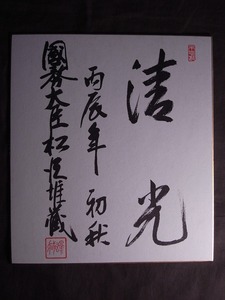 清光
丙辰年 初秋
國務大臣 松沢雄藏